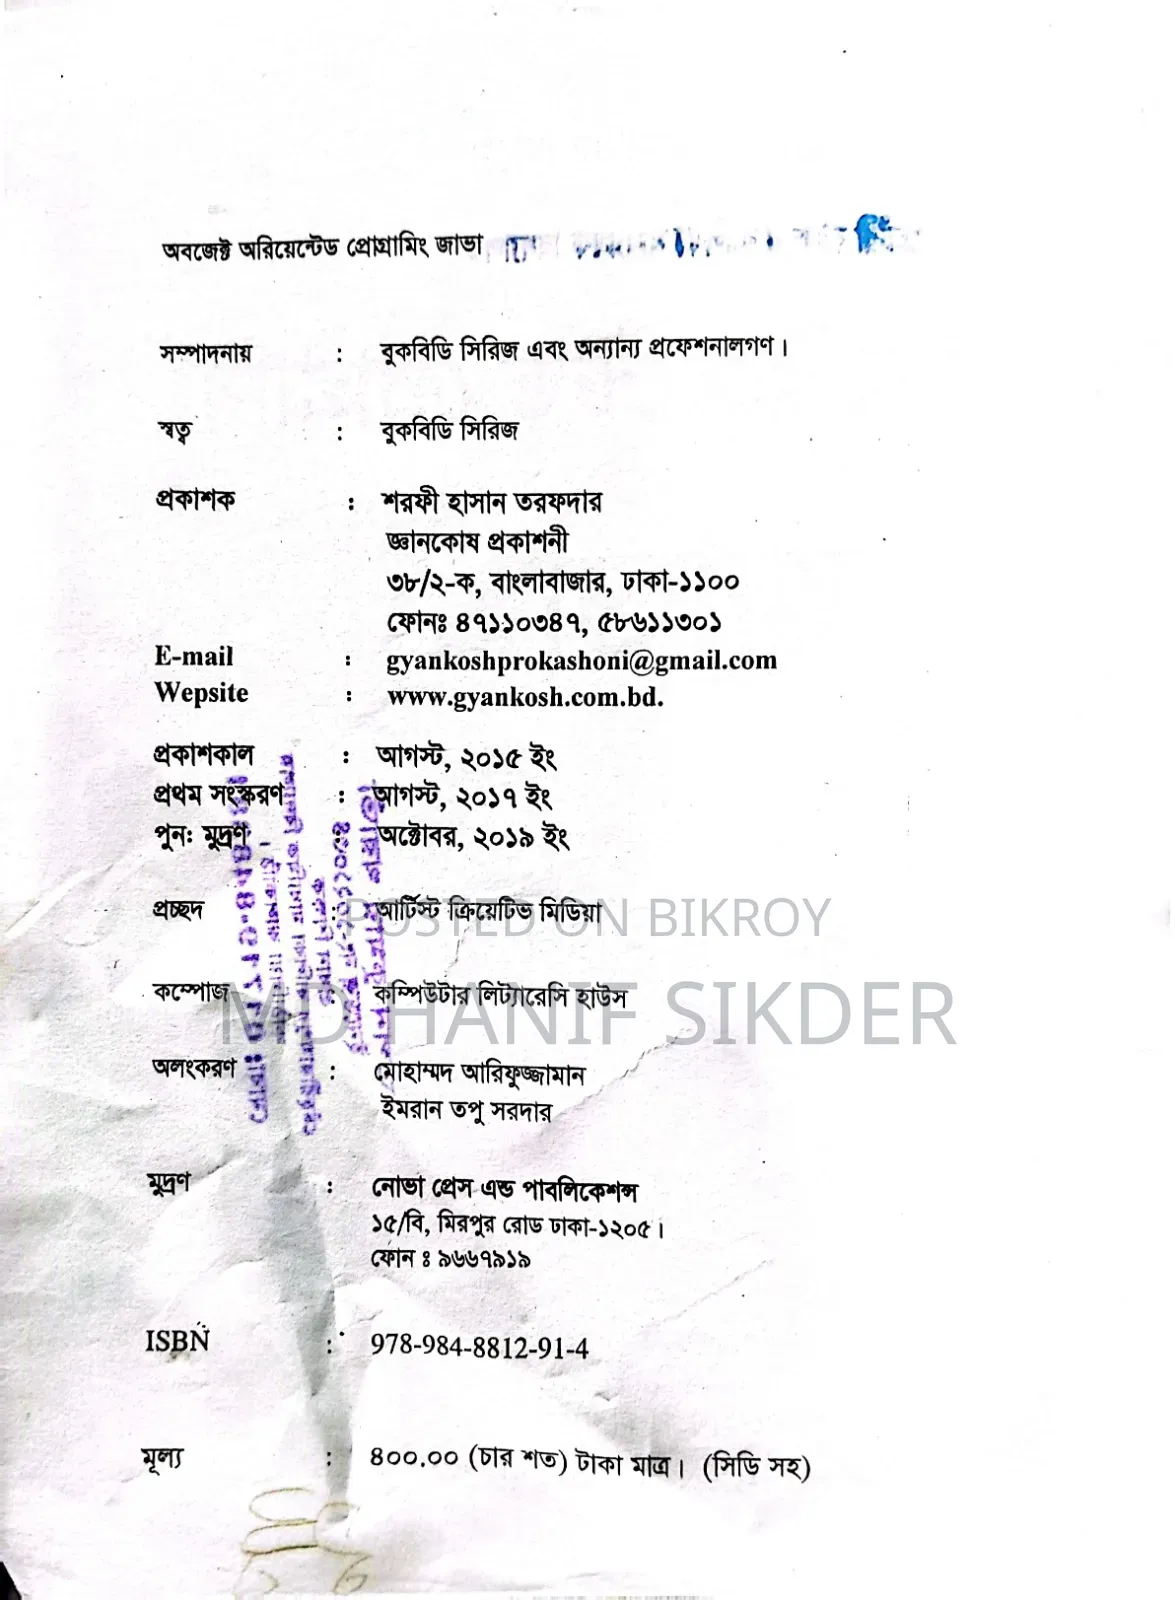 অবজেক্ট অরিয়েন্টেড প্রোগ্রামিং জাভা
সম্পাদনায় : বুকবিডি সিরিজ এবং অন্যান্য প্রফেশনালগণ।
স্বত্ব : বুকবিডি সিরিজ
প্রকাশক : শরফী হাসান তরফদার
জ্ঞানকোষ প্রকাশনী
৩৮/২-ক, বাংলাবাজার, ঢাকা-১১০০
ফোনঃ ৪৭১১০৩৪৭, ৫৮৬১১৩০১
E-mail : gyankoshprokashoni@gmail.com
Wepsite : www.gyankosh.com.bd.
প্রকাশকাল : আগস্ট, ২০১৫ ইং
প্রথম সংস্করণ : আগস্ট, ২০১৭ ইং
পুনঃ মুদ্রণ : অক্টোবর, ২০১৯ ইং
প্রচ্ছদ : আর্টিস্ট ক্রিয়েটিভ মিডিয়া
POSTED ON BIKROY
কম্পোজ : কম্পিউটার লিট্যারেসি হাউস
MD HANIF SIKDER
অলংকরণ : মোহাম্মদ আরিফুজ্জামান
ইমরান তপু সরদার
মুদ্রণ : নোভা প্রেস এন্ড পাবলিকেশন্স
১৫/বি, মিরপুর রোড ঢাকা-১২০৫।
ফোন ঃ ৯৬৬৭৯১৯
ISBN : 978-984-8812-91-4
মূল্য : ৪০০.০০ (চার শত) টাকা মাত্র। (সিডি সহ)